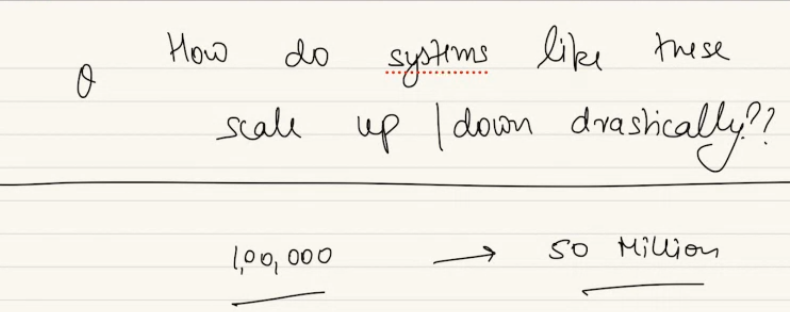 Q How do systems like these
scale up / down drastically??
1,00,000 → 50 Million